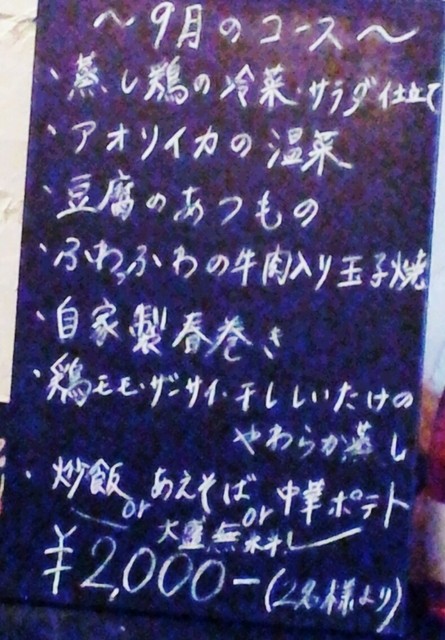 ～9月のコース～
・蒸し鶏の冷菜・サラダ仕立て
・アオリイカの温菜
・豆腐のあつもの
・ふわっふわの牛肉入り玉子焼
・自家製春巻き
・鶏モモ・ザーサイ・干ししいたけの
やわらか蒸し
・炒飯 or あえそば or 中華ポテト
大盛無料!
¥2,000-(2名様より)